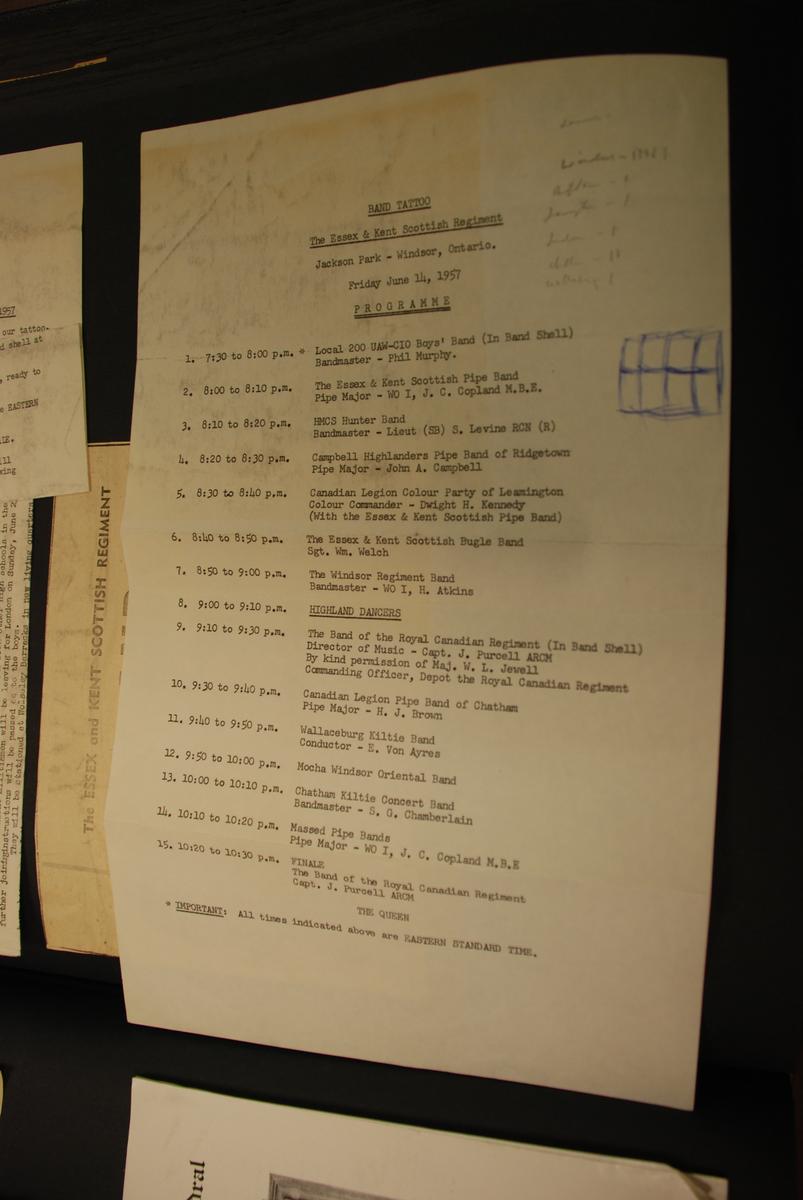 BAND TATTOO
The Essex & Kent Scottish Regiment
Jackson Park - Windsor, Ontario.
Friday June 14, 1957
PROGRAMME
1. 7:30 to 8:00 p.m. * Local 200 UAW-CIO Boys' Band (In Band Shell)
Bandmaster - Phil Murphy.
2. 8:00 to 8:10 p.m. The Essex & Kent Scottish Pipe Band
Pipe Major - WO I, J. C. Copland M.B.E.
3. 8:10 to 8:20 p.m. HMCS Hunter Band
Bandmaster - Lieut (SB) S. Levine RCN (R)
4. 8:20 to 8:30 p.m. Campbell Highlanders Pipe Band of Ridgetown
Pipe Major - John A. Campbell
5. 8:30 to 8:40 p.m. Canadian Legion Colour Party of Leamington
Colour Commander - Dwight H. Kennedy
(With the Essex & Kent Scottish Pipe Band)
6. 8:40 to 8:50 p.m. The Essex & Kent Scottish Bugle Band
Sgt. Wm. Welch
7. 8:50 to 9:00 p.m. The Windsor Regiment Band
Bandmaster - WO I, H. Atkins
8. 9:00 to 9:10 p.m. HIGHLAND DANCERS
9. 9:10 to 9:30 p.m. The Band of the Royal Canadian Regiment (In Band Shell)
Director of Music - Capt. J. Purcell ARCM
By kind permission of Maj. W. L. Jewell
Commanding Officer, Depot the Royal Canadian Regiment
10. 9:30 to 9:40 p.m. Canadian Legion Pipe Band of Chatham
Pipe Major - H. J. Brown
11. 9:40 to 9:50 p.m. Wallaceburg Kiltie Band
Conductor - E. Von Ayres
12. 9:50 to 10:00 p.m. Mocha Windsor Oriental Band
13. 10:00 to 10:10 p.m. Chatham Kiltie Concert Band
Bandmaster - S. G. Chamberlain
14. 10:10 to 10:20 p.m. Massed Pipe Bands
Pipe Major - WO I, J. C. Copland M.B.E
15. 10:20 to 10:30 p.m. FINALE
The Band of the Royal Canadian Regiment
Capt. J. Purcell ARCM
THE QUEEN
* IMPORTANT: All times indicated above are EASTERN STANDARD TIME.
1957
our tattoo.
shell at
ready to
EASTERN
The ESSEX and KENT SCOTTISH REGIMENT
high schools in the
will be leaving for London on Sunday, June 2
further instructions will be passed to the boys.
They will be stationed at Wolseley Barracks in new living quarters